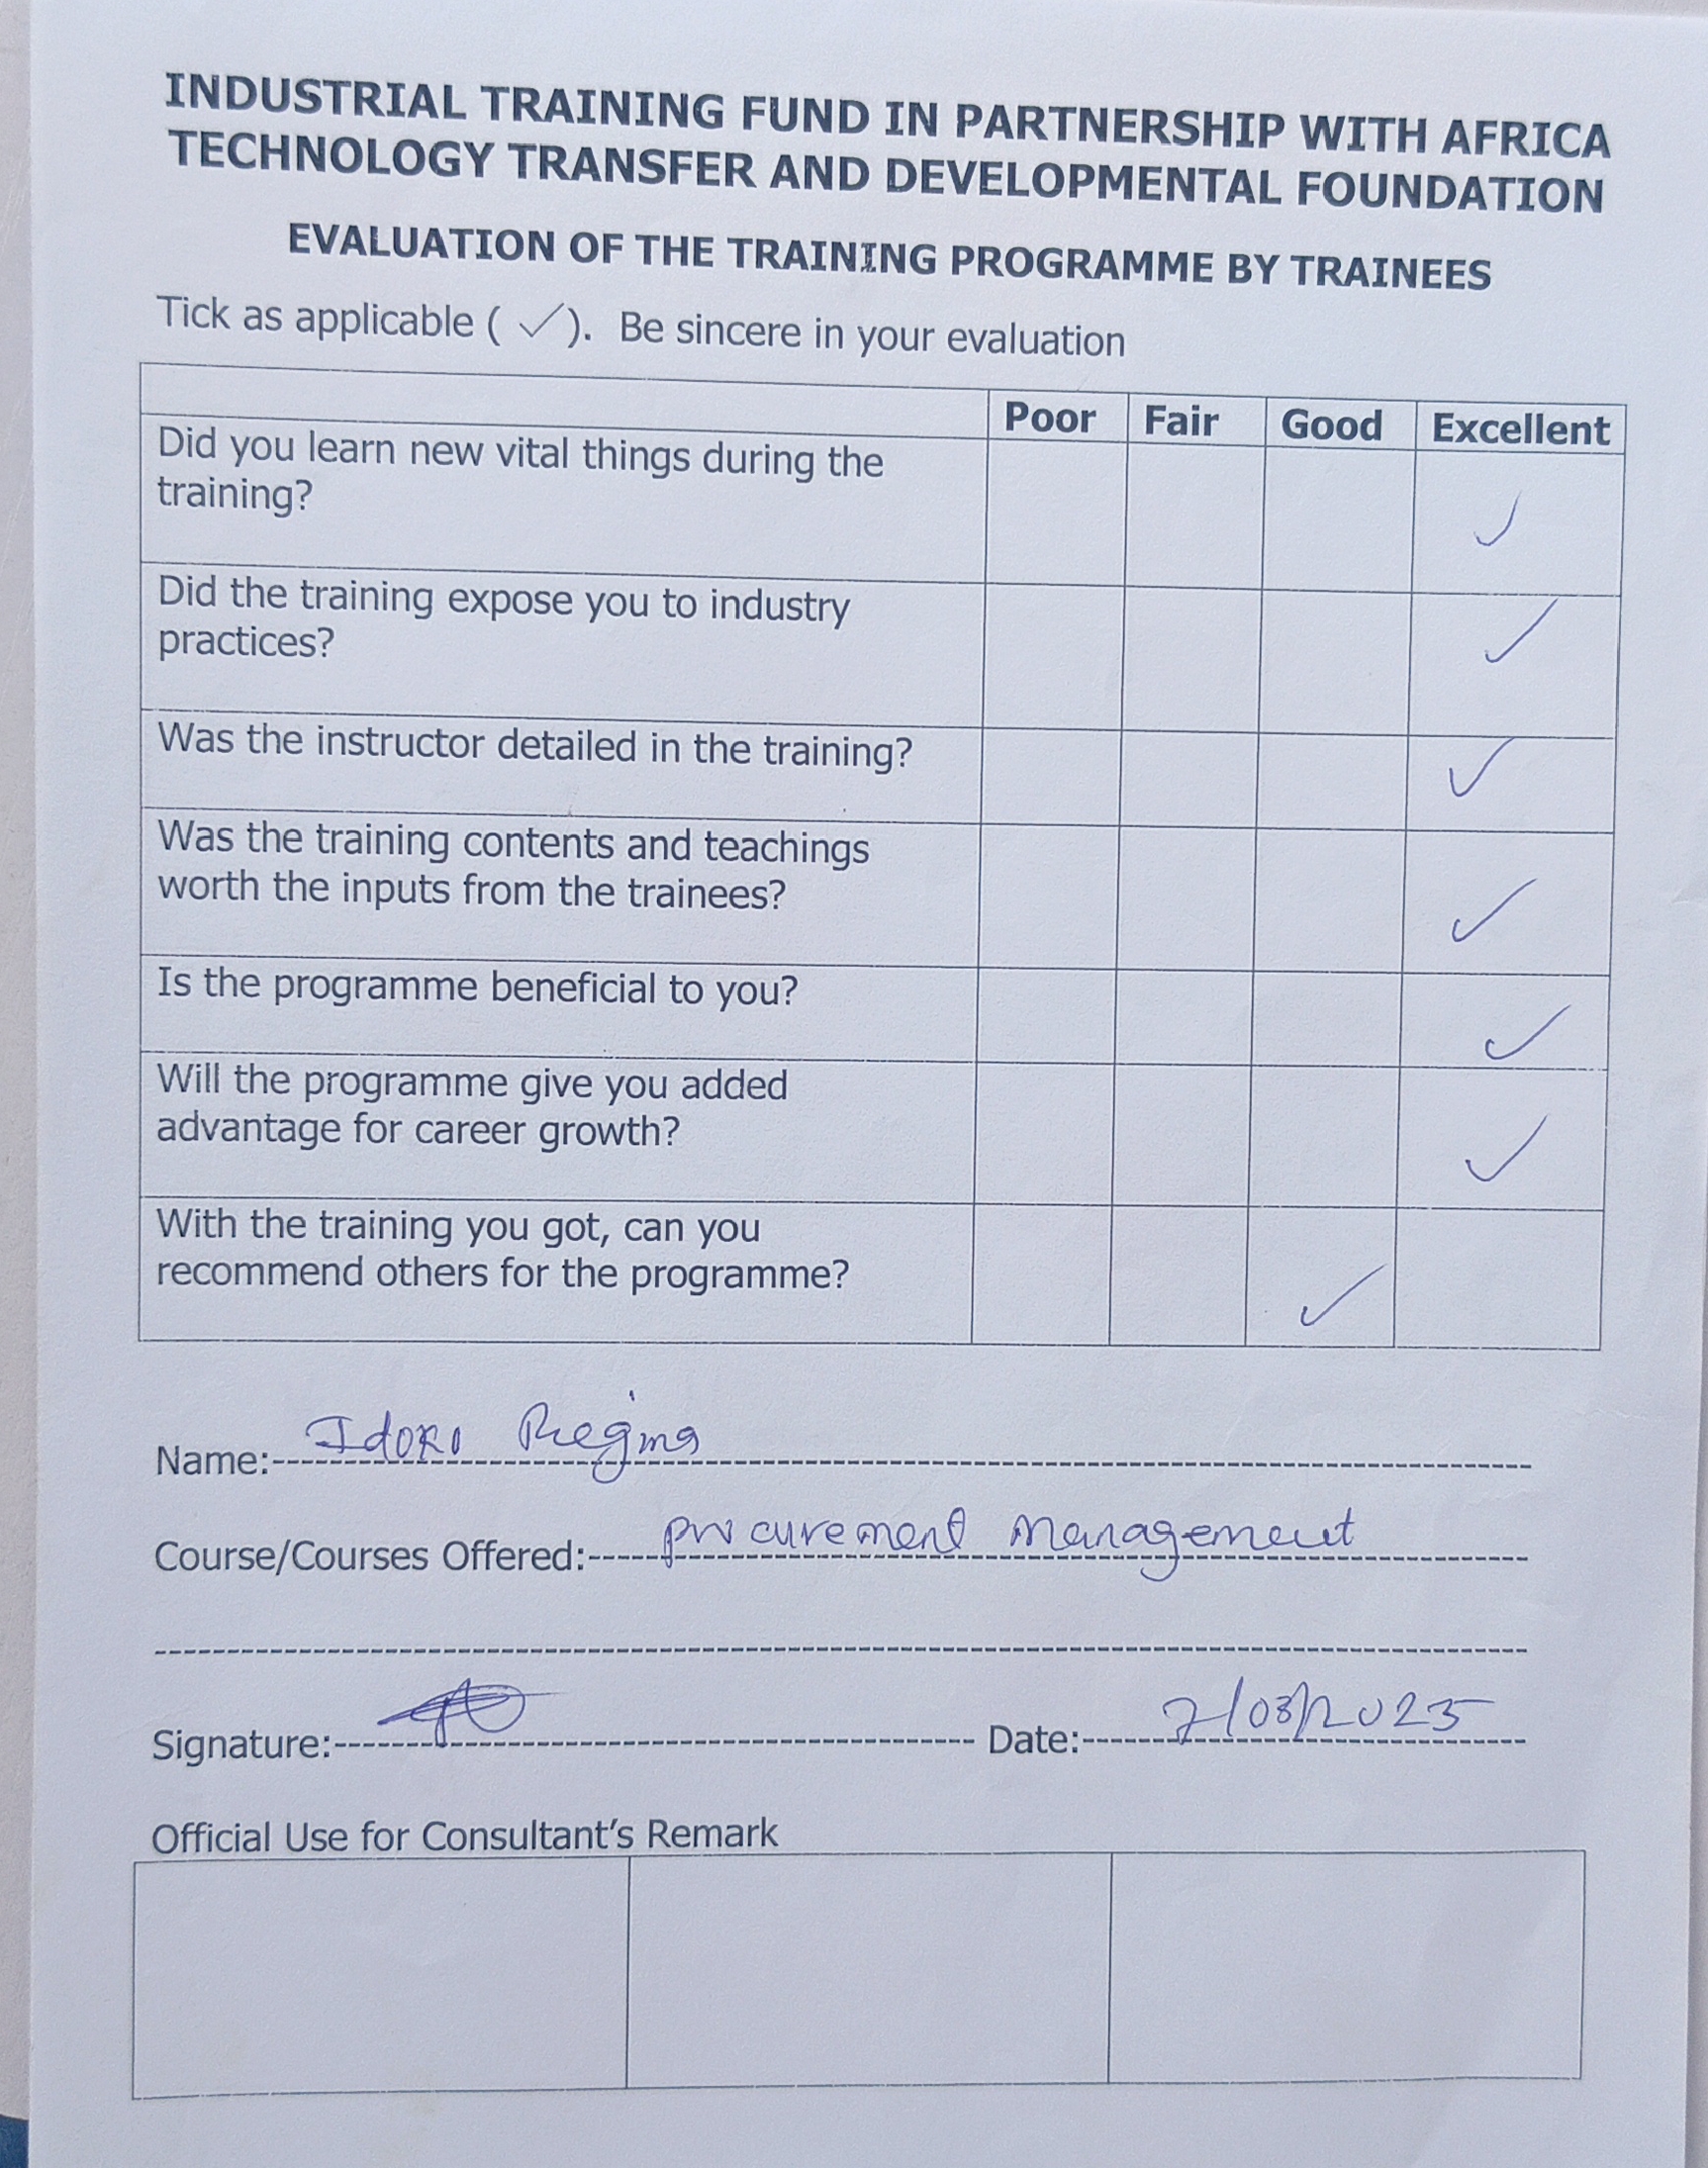 INDUSTRIAL TRAINING FUND IN PARTNERSHIP WITH AFRICA
TECHNOLOGY TRANSFER AND DEVELOPMENTAL FOUNDATION
EVALUATION OF THE TRAINING PROGRAMME BY TRAINEES
Tick as applicable ( ✓). Be sincere in your evaluation
Poor Fair Good Excellent
Did you learn new vital things during the
training?
✓
Did the training expose you to industry
practices?
✓
Was the instructor detailed in the training? ✓
Was the training contents and teachings
worth the inputs from the trainees?
✓
Is the programme beneficial to you?
✓
Will the programme give you added
advantage for career growth?
✓
With the training you got, can you
recommend others for the programme?
✓
Name: Idoko Regina
Course/Courses Offered: procurement management
Signature: Date: 7/03/2025
Official Use for Consultant's Remark